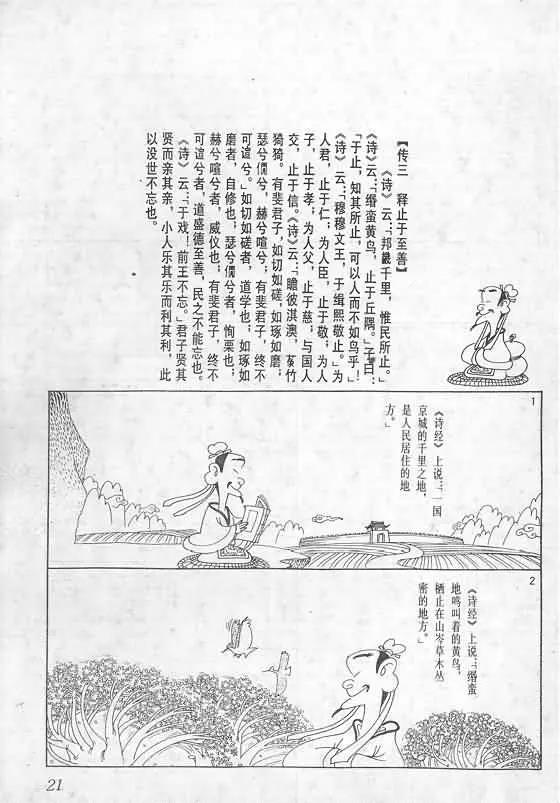 【传三　释止于至善】
《诗》云：“邦畿千里，惟民所止。”
《诗》云：“缗蛮黄鸟，止于丘隅。”子曰：
“于止，知其所止，可以人而不如鸟乎！”
《诗》云：“穆穆文王，于缉熙敬止。”为
人君，止于仁；为人臣，止于敬；为人
子，止于孝；为人父，止于慈；与国人
交，止于信。《诗》云：“瞻彼淇澳，菉竹
猗猗。有斐君子，如切如磋，如琢如磨；
瑟兮僩兮，赫兮喧兮；有斐君子，终不
可諠兮。”如切如磋者，道学也；如琢如
磨者，自修也；瑟兮僩兮者，恂栗也；
赫兮喧兮者，威仪也；有斐君子，终不
可諠兮者，道盛德至善，民之不能忘也。
《诗》云：“于戏！前王不忘。”君子贤其
贤而亲其亲，小人乐其乐而利其利，此
以没世不忘也。
1
《诗经》上说：“一国
京城的千里之地，
是人民居住的地
方。”
2
《诗经》上说：“缗蛮
地鸣叫着的黄鸟，
栖止在山岑草木丛
密的地方。”
21